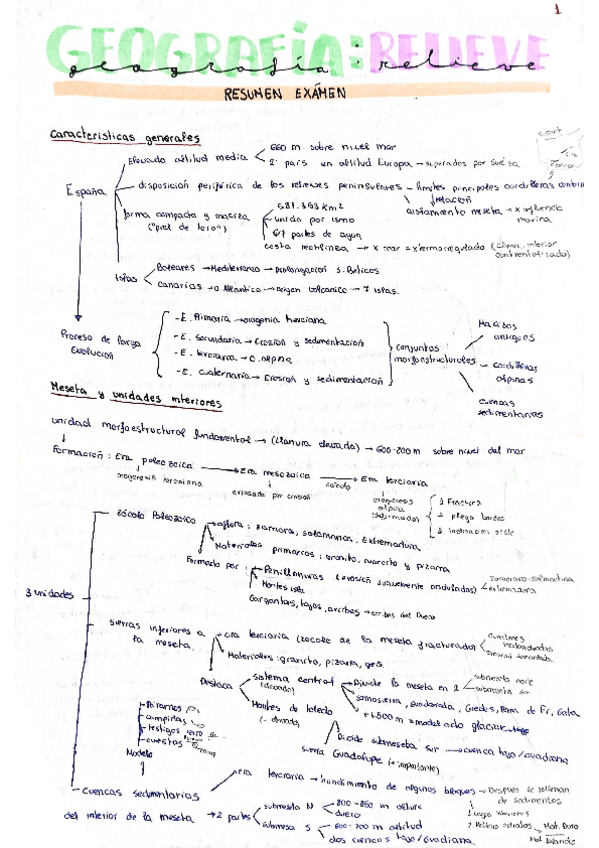 1
GEOGRAFÍA: RELIEVE
geografía : relieve
RESUMEN EXÁMEN
Características generales
España
Elevada altitud media
660 m sobre nivel mar
2º país en altitud Europa → superados por Suiza
disposición periférica de los relieves peninsulares → límites principales cordilleras
relación
aislamiento meseta → x influencia marina
forma compacta y maciza ("piel de toro")
581.363 Km2
unida por ismo
6/7 partes de agua
costa rectilínea → x mar = x termorregulado
Islas
Baleares → Mediterráneo → prolongación S. Béticos
Canarias → O. Atlántico → origen volcánico → 7 islas.
Proceso de larga evolución
- E. Primaria → orogenia herciana
- E. Secundaria → Erosión y sedimentación
- E. terciaria → O. alpina
- E. cuaternaria → Erosión y sedimentación
conjuntos morfoestructurales
Macizos antiguos
cordilleras alpinas
cuencas sedimentarias
Meseta y unidades interiores
unidad morfoestructural fundamental → (llanura elevada) → 600-800 m sobre nivel del mar
Formación : Era paleozoica → Era mesozoica → Era terciaria
orogenesis herciniana
erosionada por erosión
orogénesis alpina
1. Fractura
2. pliega bordes
3. inclinación oeste
3 unidades
zócalo Paleozoico
aflora : zamora, salamanca, Extremadura
Materiales primarios : granito, cuarcita y pizarra
Formado por :
Penillanuras (erosión suavemente onduladas)
Zamorano-salmantina
extremeña
Montes isla
Gargantas, tajos, arribes → arribes del Duero
sierras interiores a la meseta.
era terciaria (zócalo de la meseta fracturado)
cumbres redondeadas
Materiales: granito, pizarra, geis.
Destaca
sistema central (elevado)
Divide la meseta en 2
submeseta norte
submeseta sur
somosierra, guadarrama, Gredos, Pena de Fr, Gata
Montes de toledo (- elevado)
Divide submeseta sur → cuenca tajo/guadiana
sierra Guadalupe (+ importante)
Páramos
campiñas
testigos
cuestas
Modelo
cuencas sedimentarias del interior de la meseta
era terciaria → hundimiento de algunos bloques → Después se rellenan de sedimentos
Mat. Duro
Mat. blando
→ 2 partes
submeseta N
800 - 850 m altura
duero
submesa S
600 - 700 m altitud
dos cuencas tajo/Guadiana.